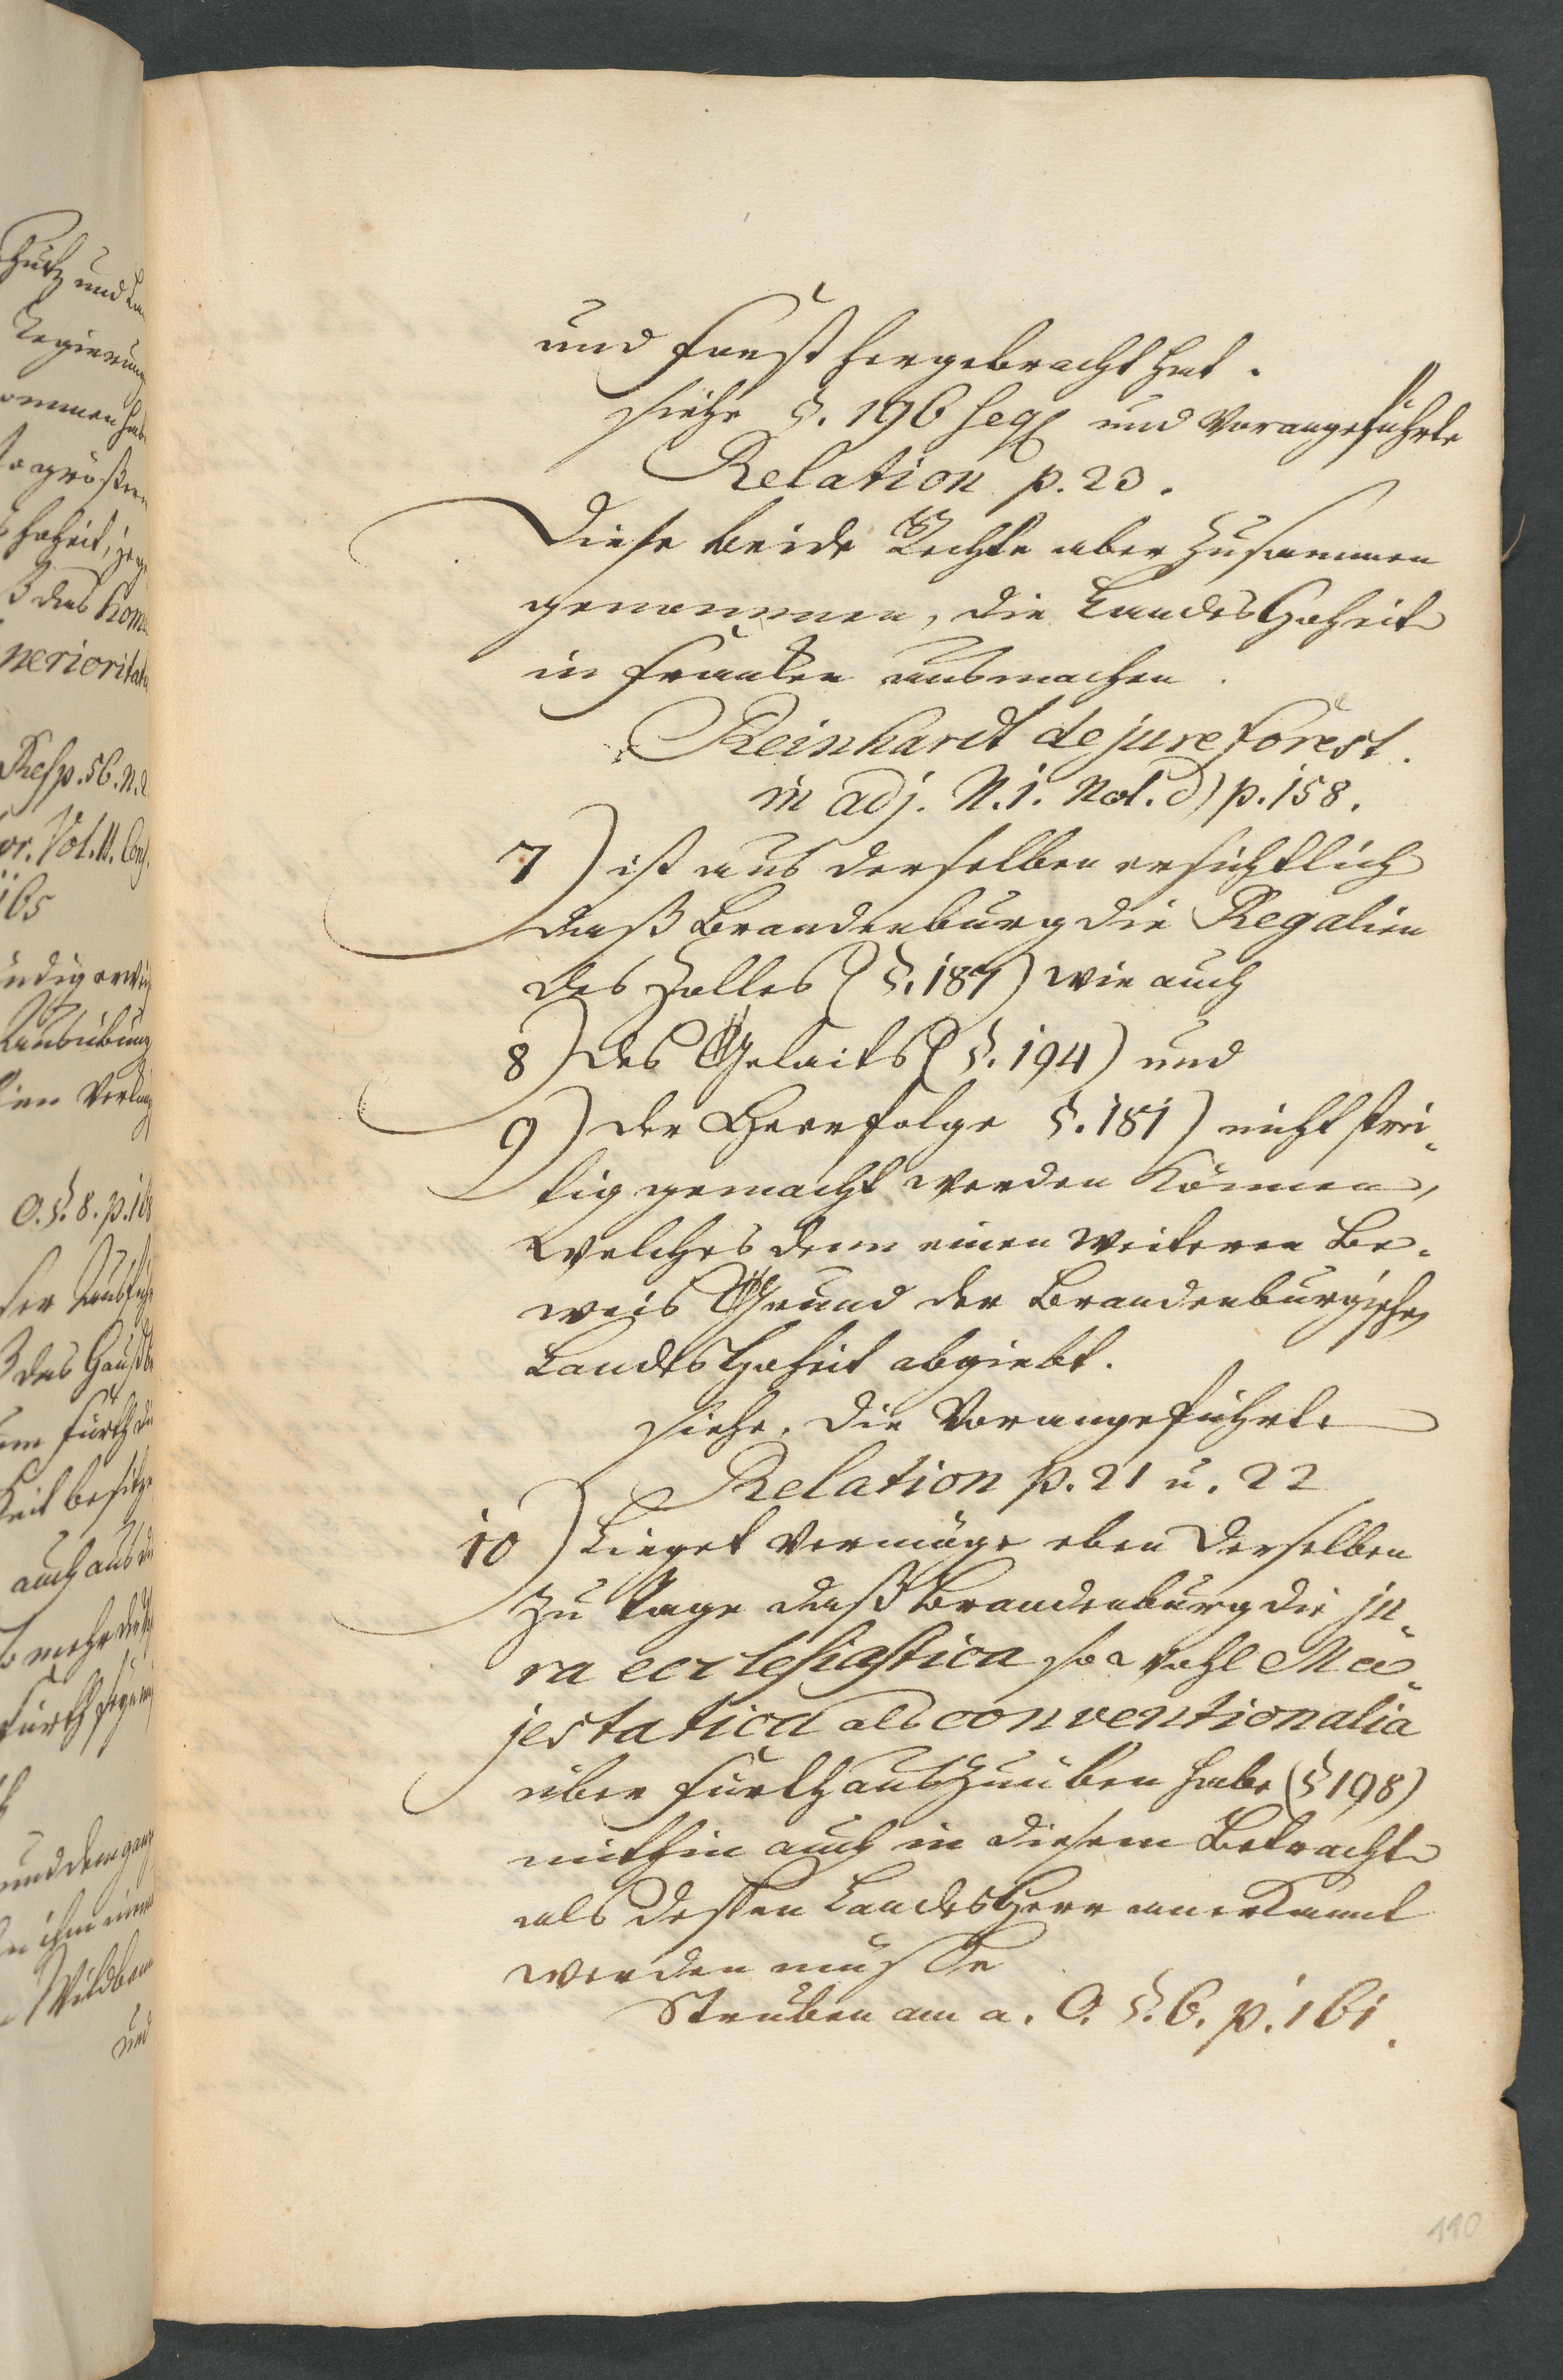 und Forst hergebracht hat.
siehe §. 196 seqq und vorangeführte
Relation p. 23.
Diese beide Rechte aber zusammen
genommen, die Landes Hoheit
in Franken ausmachen.
Reinhardt de jure forest.
in adj. N. 1. Not. d) p. 158.
7) ist aus derselben ersichtlich
daß Brandenburg die Regalien
des Zolles (§. 187) wie auch
8) des Gelaits (§. 194) und
9) der Heerfolge §. 181) nicht strei-
tig gemacht werden können,
welches denn einen weiteren Be-
weis Grund der Brandenburgischen
Landes Hoheit abgiebt.
siehe die vorangeführte
Relation p. 21 u. 22
10) Lieget vermöge eben derselben
zu Tage daß Brandenburg die ju-
ra ecclesiastica so wohl Ma-
jestatica als conventionalia
über Fürth auszuüben habe (§ 198)
mithin auch in diesem Betracht
als dessen Landes Herr anerkannt
werden müsse
Struben am a. O. §. 6. p. 161.
110